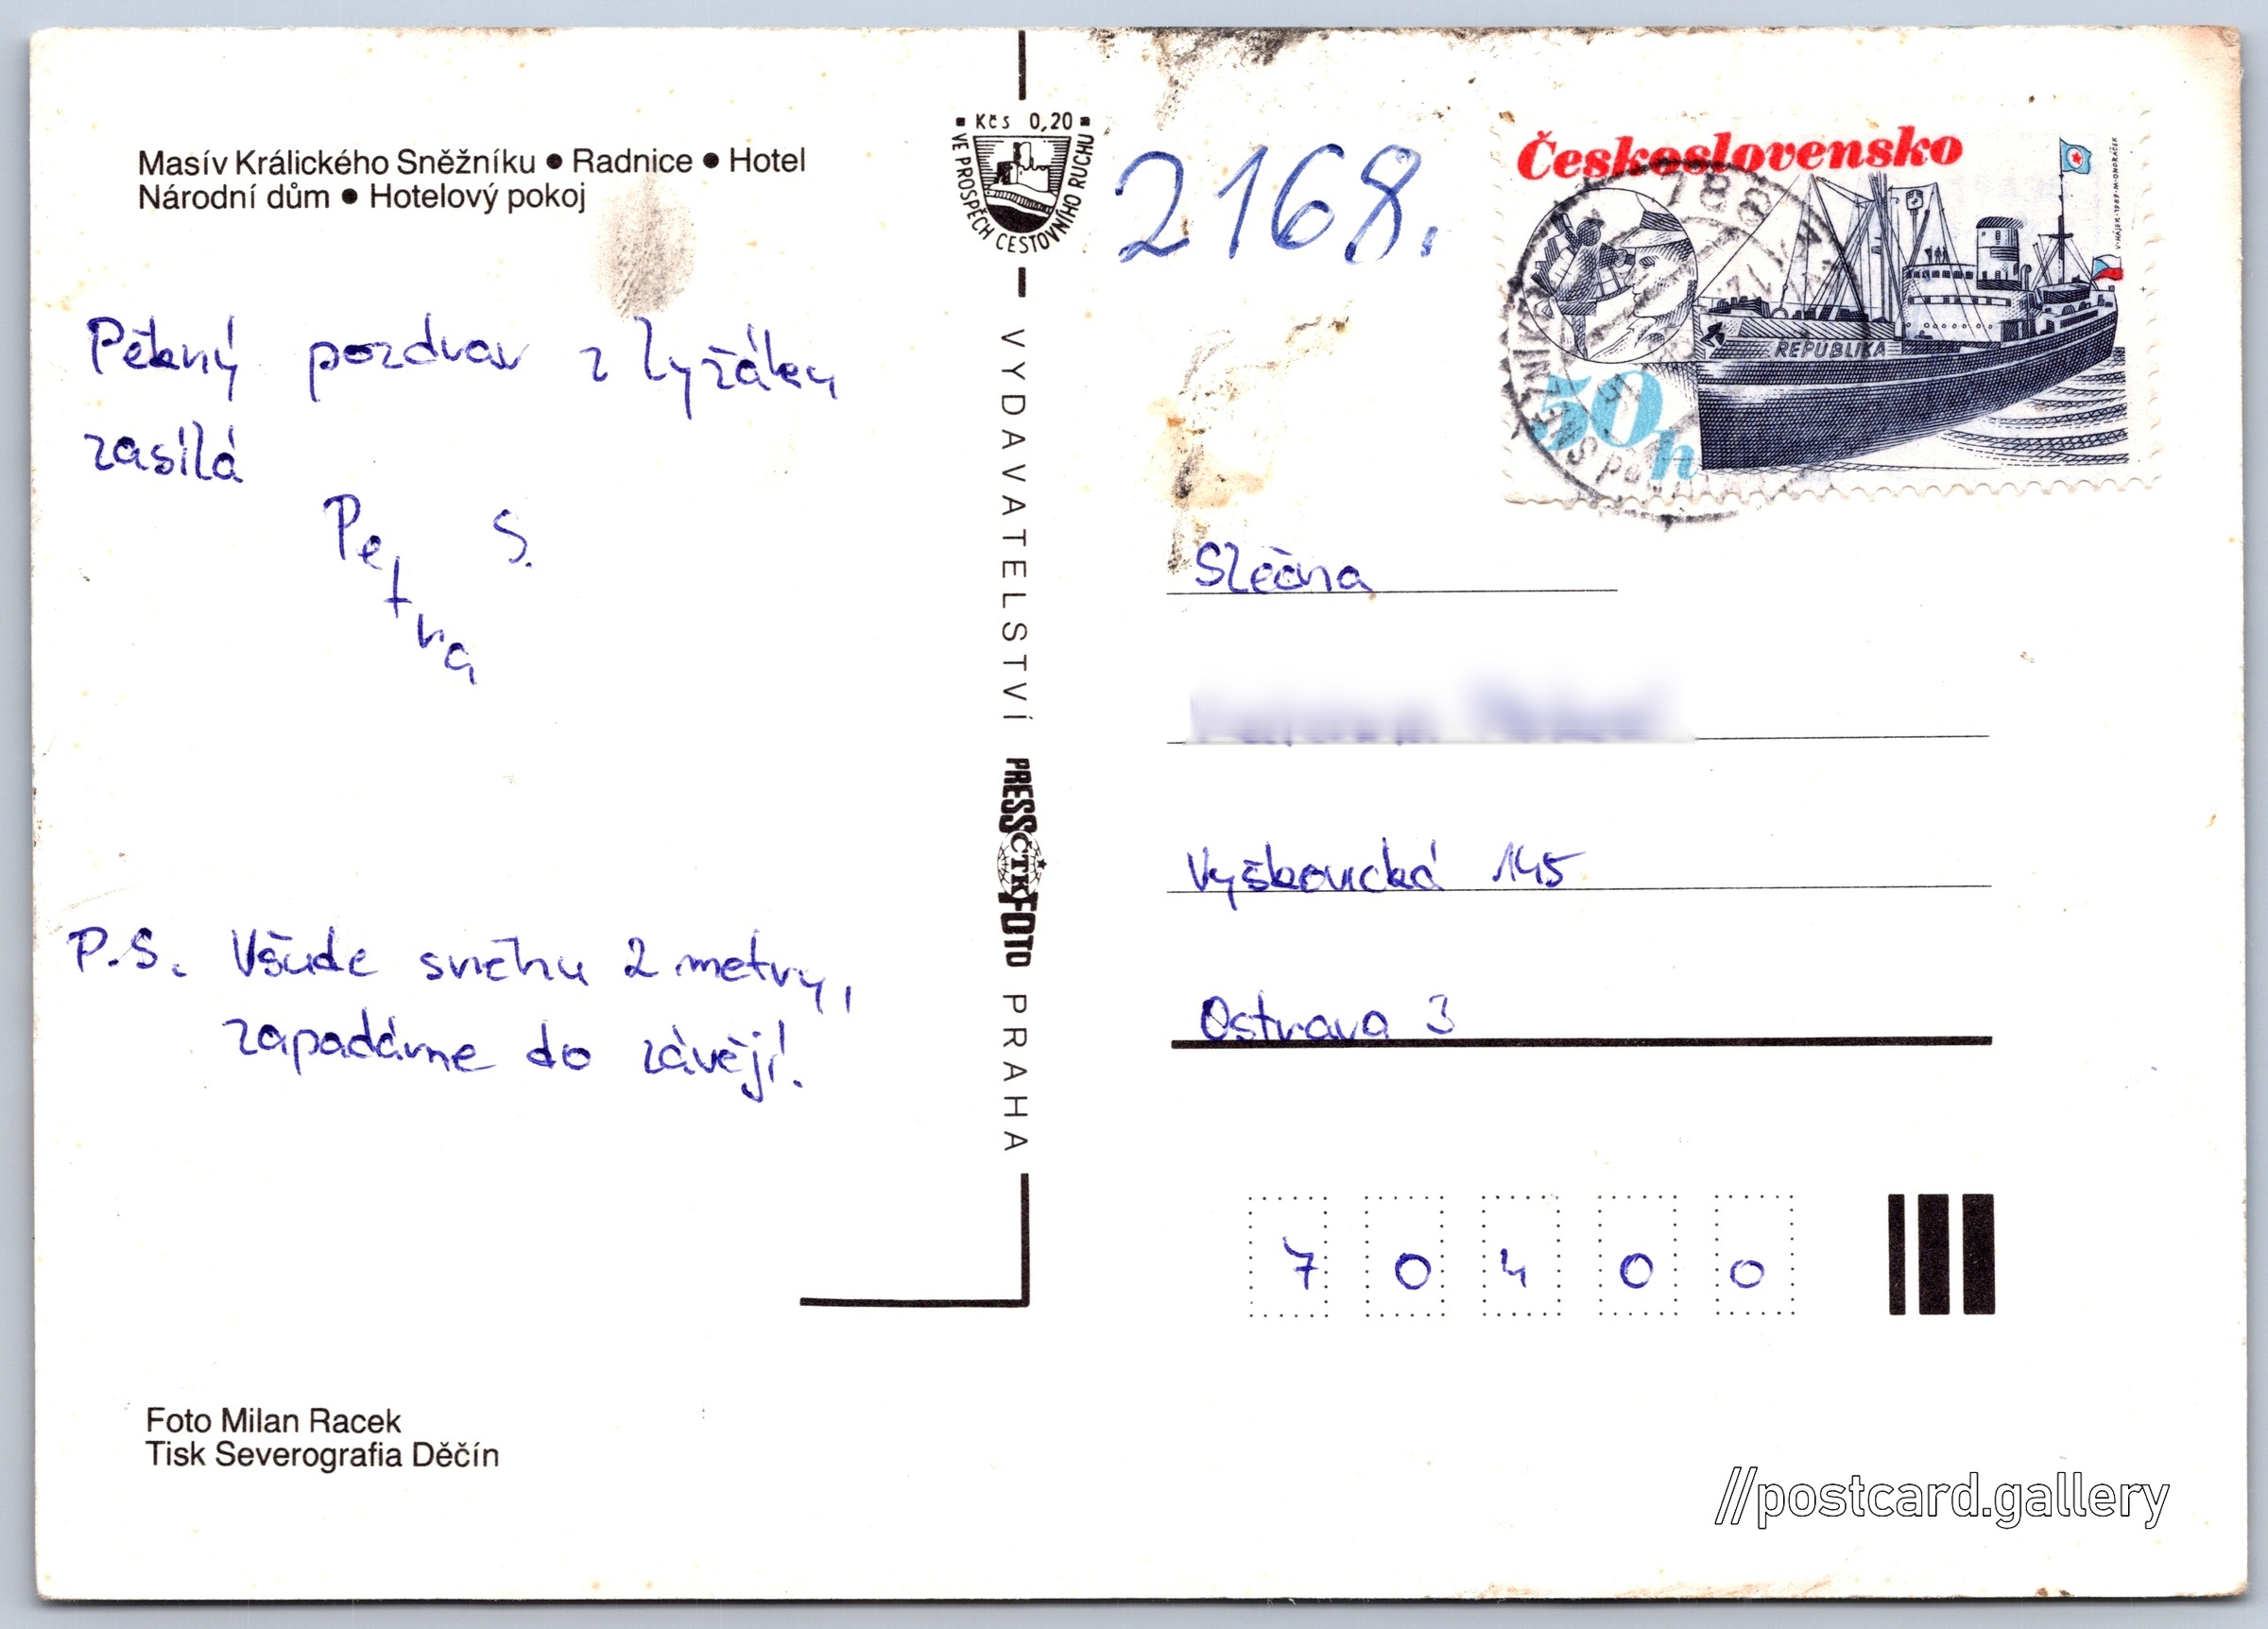 Masív Králického Sněžníku ● Radnice ● Hotel
Národní dům ● Hotelový pokoj
Pěkný pozdrav z lyžáku
zasílá
Petra S.
P.S. Všude sněhu 2 metry,
zapadáme do závějí.
Foto Milan Racek
Tisk Severografia Děčín
Kčs 0,20
VE PROSPĚCH CESTOVNÍHO RUCHU
VYDAVATELSTVÍ PRESSFOTO PRAHA
ČTK
2168.
Československo
REPUBLIKA
50h
788
Slečna
Vyškovická 145
Ostrava 3
7 0 4 0 0
//postcard.gallery